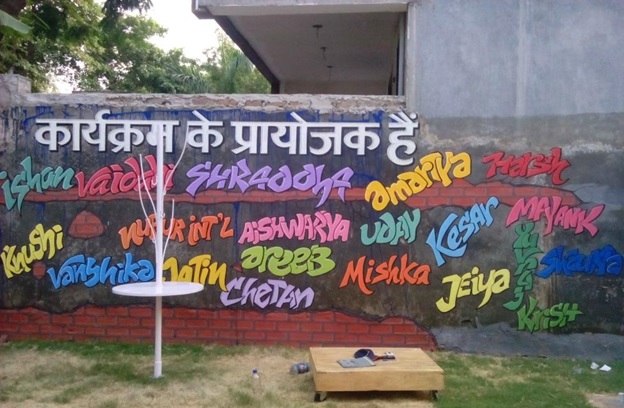 कार्यक्रम के प्रायोजक हैं
ishan Vaidehi SHRADDHA amariya Harsh
Khushi NUPUR INT'L AiSHWARYA UDAY Kesar MAYANK
Vanshika Jatin areeb Mishka JEiYA
Chetan Krish